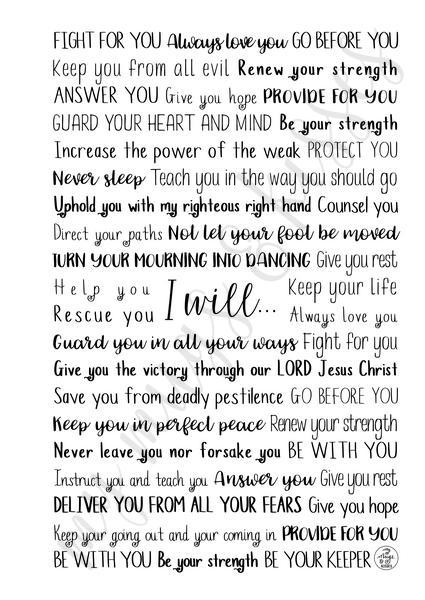 FIGHT FOR YOU Always love you GO BEFORE YOU
Keep you from all evil Renew your strength
ANSWER YOU Give you hope PROVIDE FOR YOU
GUARD YOUR HEART AND MIND Be your strength
Increase the power of the weak PROTECT YOU
Never sleep Teach you in the way you should go
Uphold you with my righteous right hand Counsel you
Direct your paths Not let your foot be moved
TURN YOUR MOURNING INTO DANCING Give you rest
Help you
Rescue you
I will...
Keep your life
Always love you
Guard you in all your ways Fight for you
Give you the victory through our LORD Jesus Christ
Save you from deadly pestilence GO BEFORE YOU
Keep you in perfect peace Renew your strength
Never leave you nor forsake you BE WITH YOU
Instruct you and teach you Answer you Give you rest
DELIVER YOU FROM ALL YOUR FEARS Give you hope
Keep your going out and your coming in PROVIDE FOR YOU
BE WITH YOU Be your strength BE YOUR KEEPER